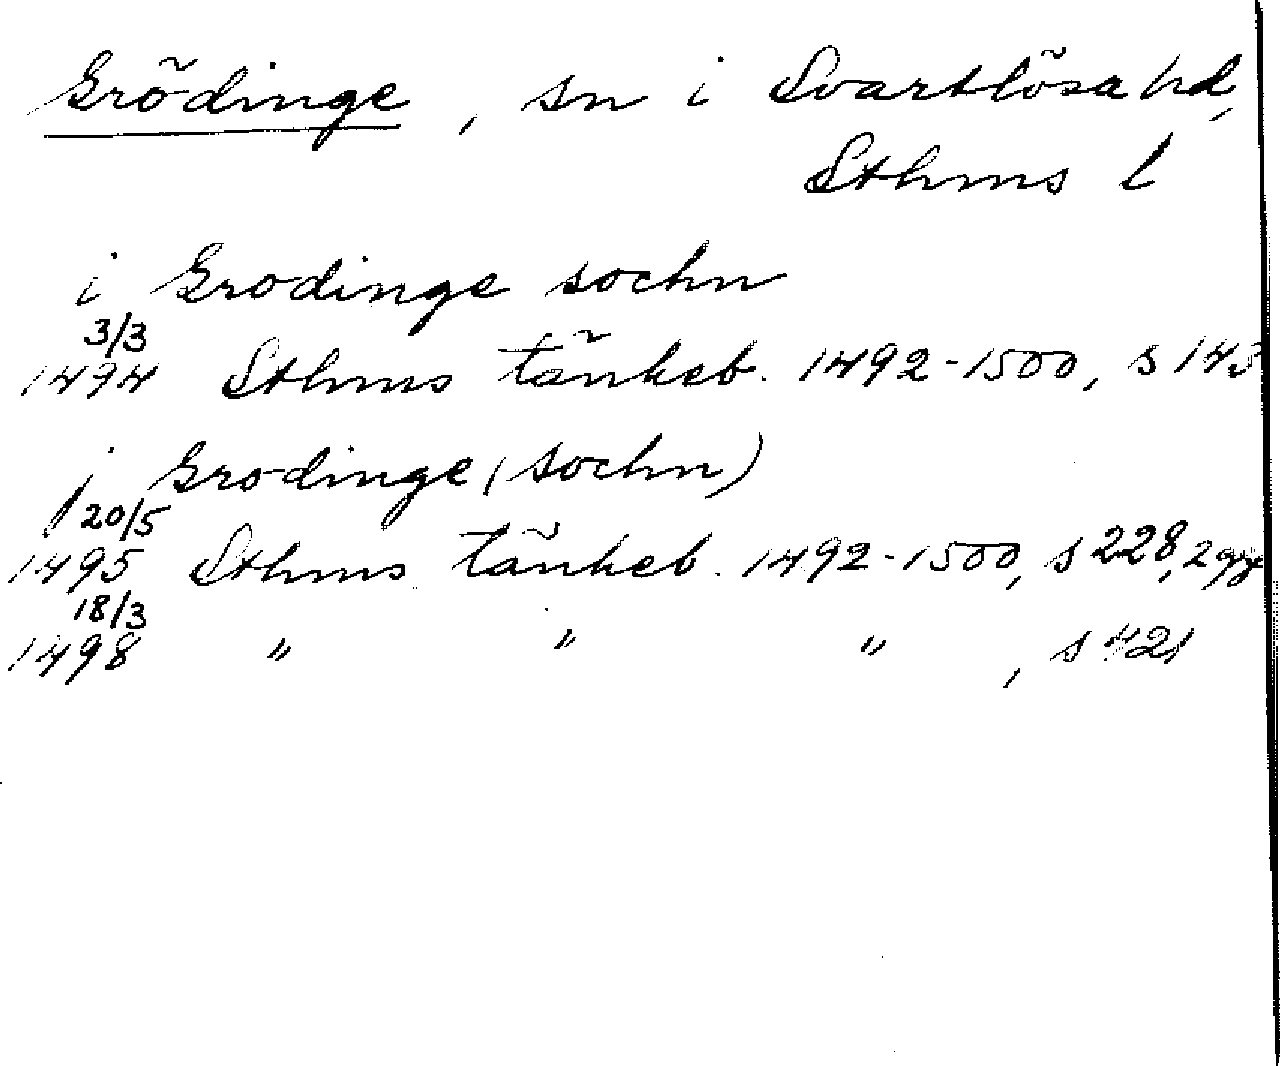 Grödinge, sn i Svartlösa hd,
Sthms l
i Grodinge sochn
3/3
1494 Sthms tänkeb. 1492-1500, s 143
j Grodinge (sochn)
20/5
1495 Sthms tänkeb. 1492-1500, s 228, 2 ggr
18/3
1498 " " " , s 421